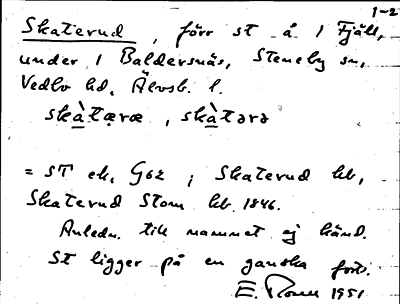 1-2
Skaterud, förr st å 1 Fjäll,
under 1 Baldersnäs, Steneby sn,
Vedbo hd, Älvsb. l.
skàtæræ, skàtərə
= ST ek. G62; Skaterud kb,
Skaterud Stom kb. 1846.
Anledn. till namnet ej känd.
St ligger på en ganska
E. 1951